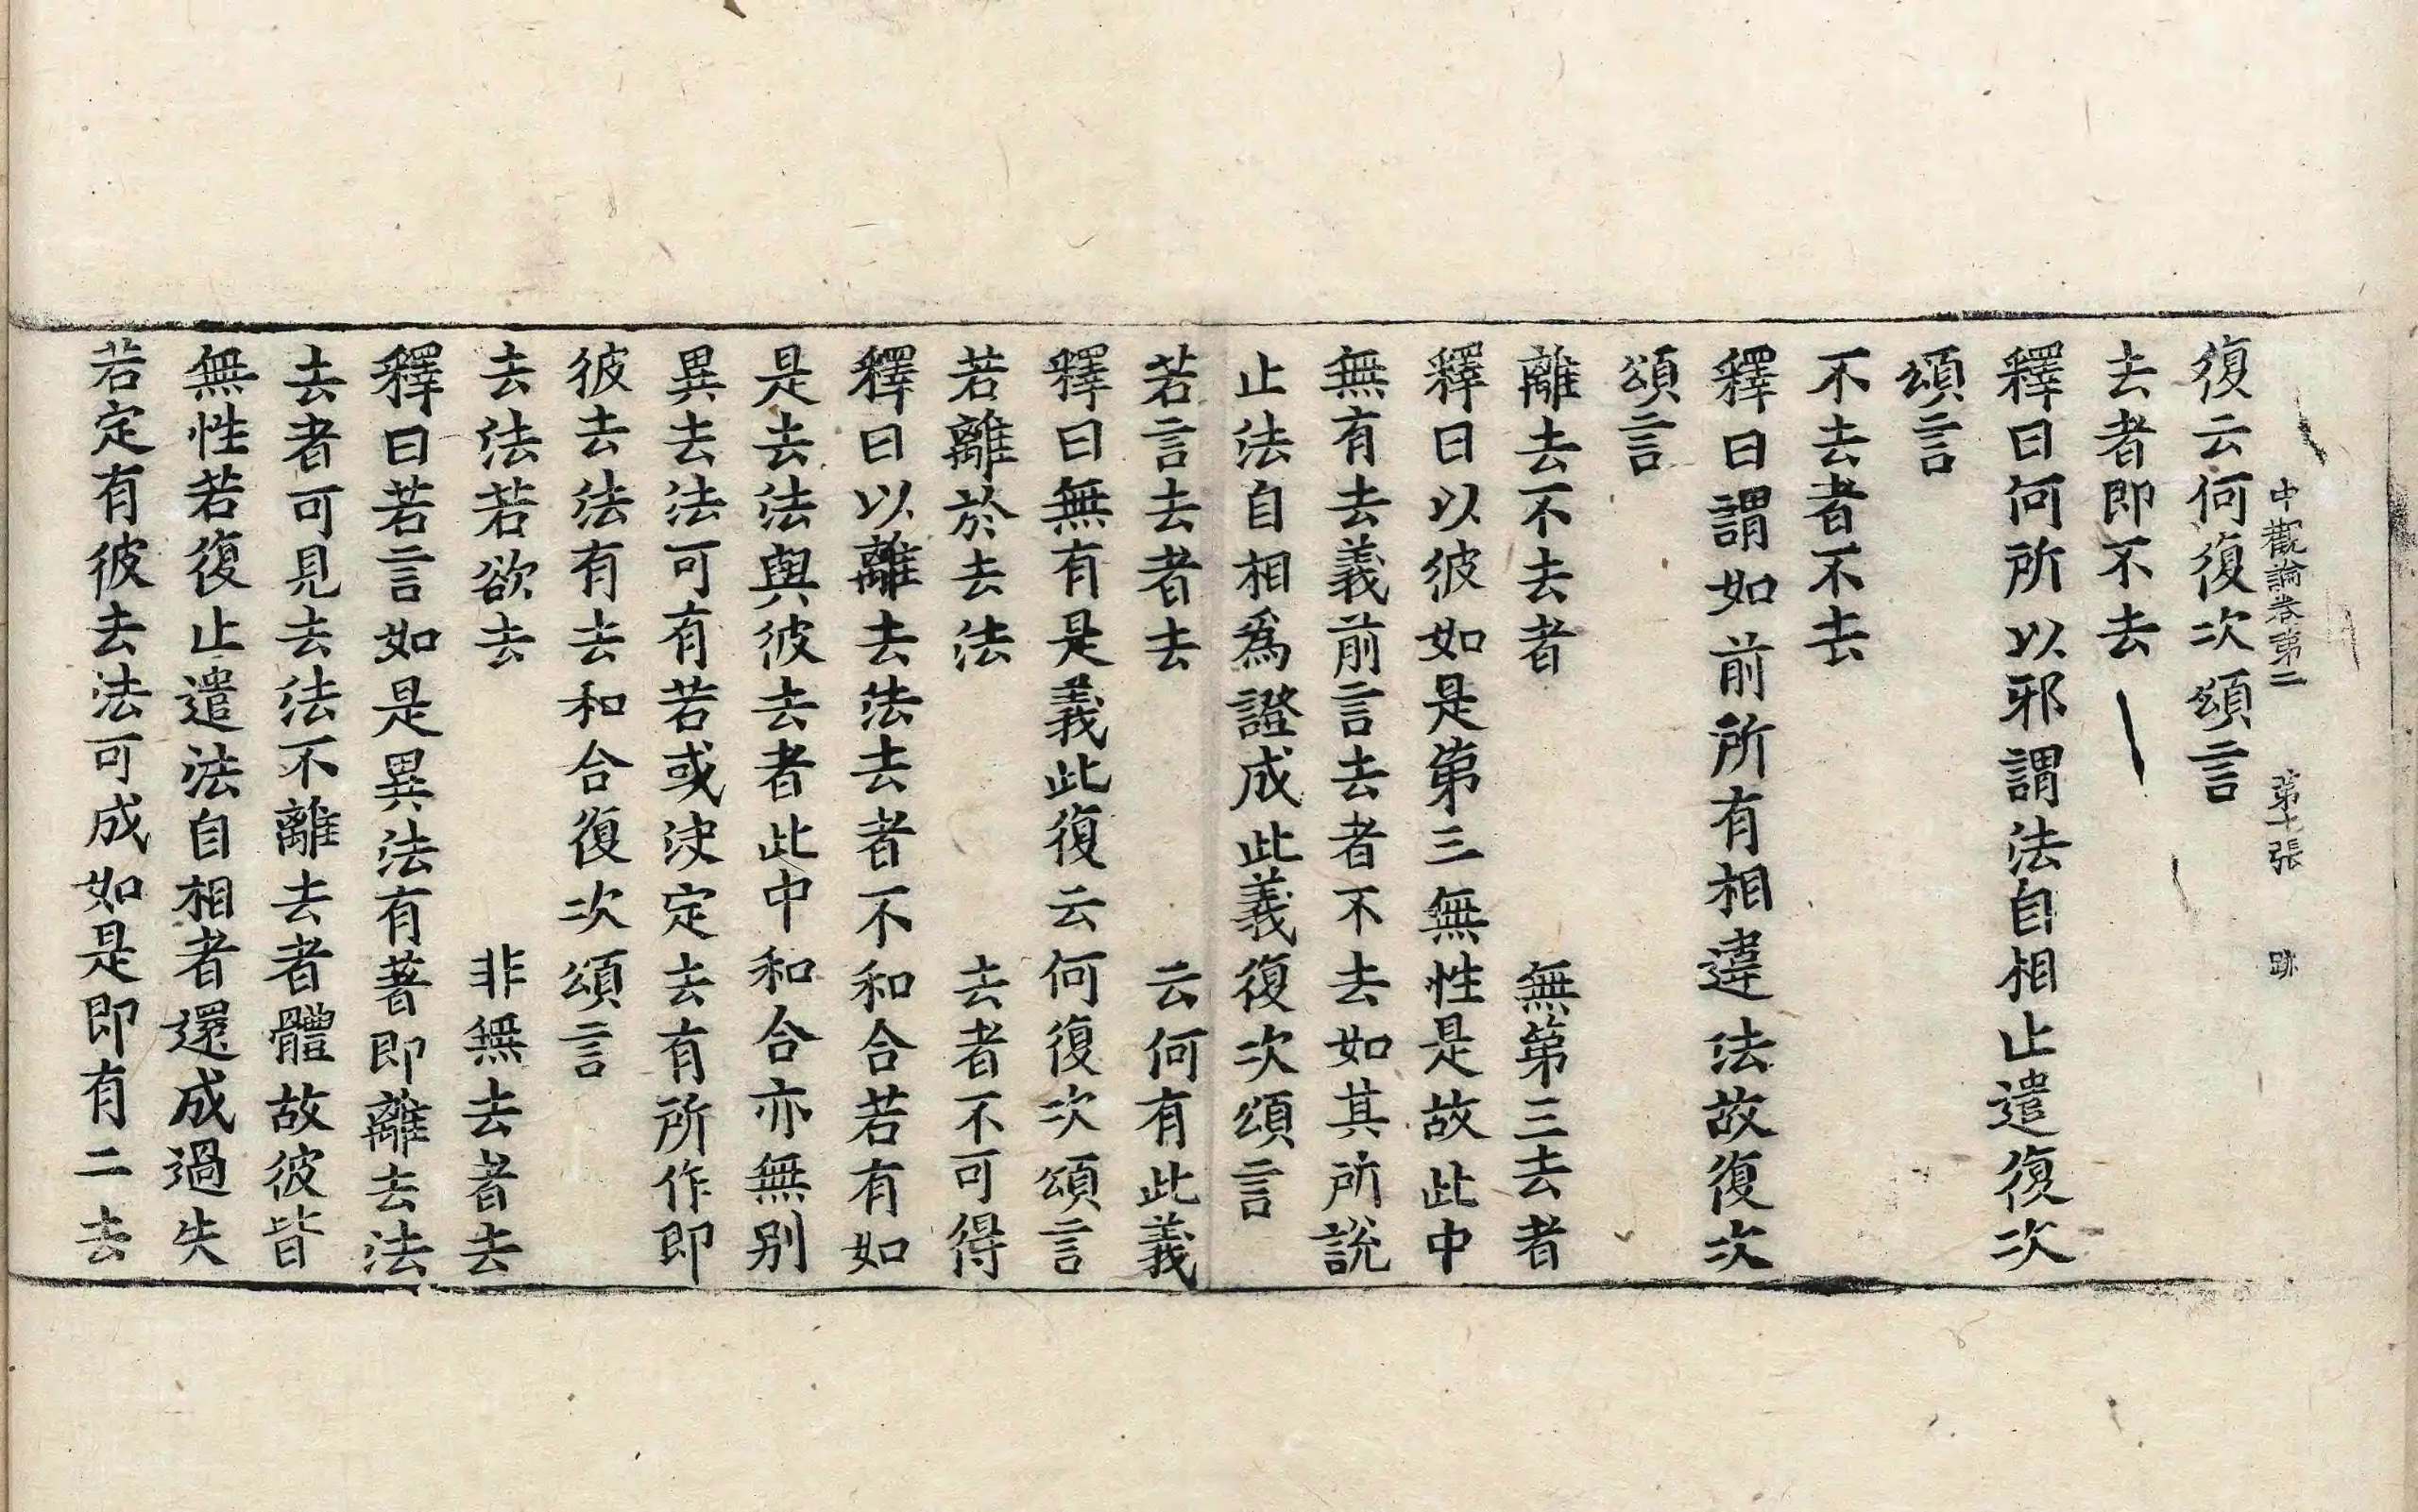 中觀論卷第二　第十張　跡
復云何復次頌言
去者即不去
釋曰何所以邪謂法自相止遣復次
頌言
不去者不去
釋曰謂如前所有相違法故復次
頌言
離去不去者　無第三去者
釋曰以彼如是第三無性是故此中
無有去義前言去者不去如其所說
止法自相為證成此義復次頌言
若言去者去　云何有此義
釋曰無有是義此復云何復次頌言
若離於去法　去者不可得
釋曰以離去法去者不和合若有如
是去法與彼去者此中和合亦無別
異去法可有若或決定去有所作即
彼去法有去和合復次頌言
去法若欲去　非無去者去
釋曰若言如是異法有著即離去法
去者可見去法不離去者體故彼皆
無性若復止遣法自相者還成過失
若定有彼去法可成如是即有二去